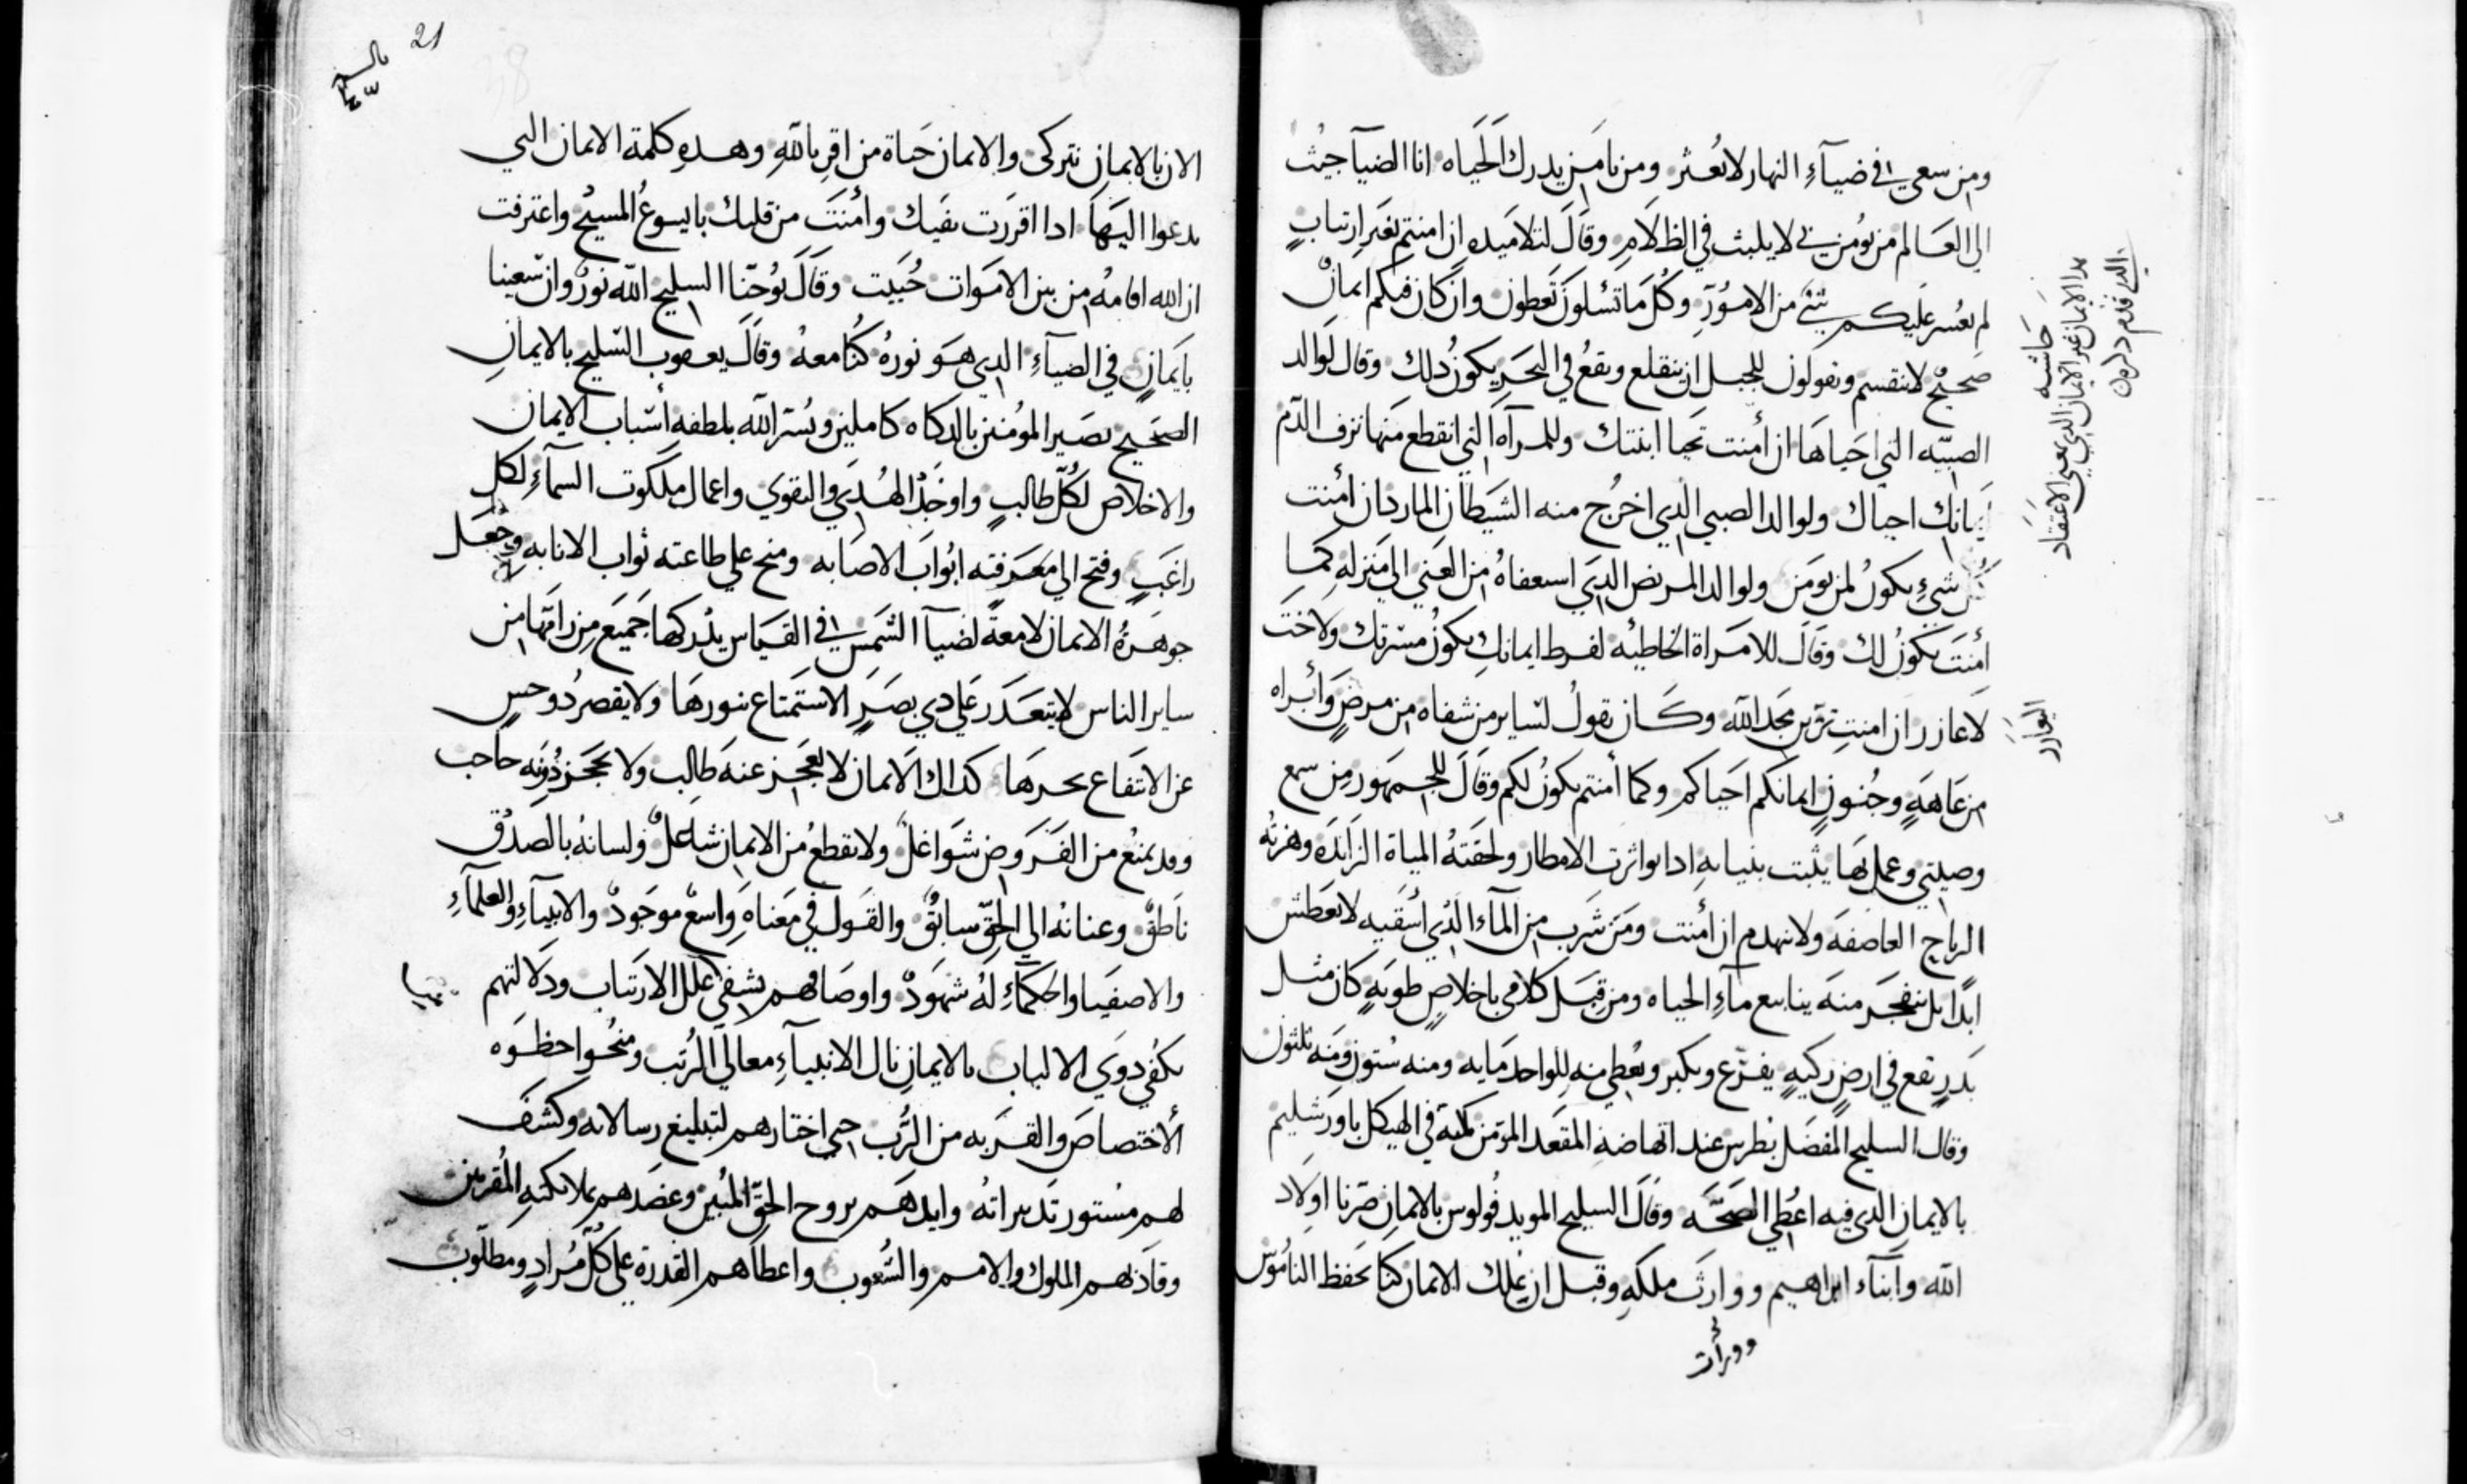 ومن سعي في ضيآءِ النهار لا يُعثر ومن يامن يدرك الحَياه انا الضيآ جيُت
الي العَالم من يومن بي لا يلبث في الظلَامِ وقَالَ لتلاميده ان امنتم بغَير ارتيابٍ
لم يعُسر عليكم شئ من الامُورِ وكُل مَا تسئلونَ تعَطون وان كان فيكم ايمانٌ
صحيحٌ لا ينقسم وتقولون للجبل ان ينقلع ويقعُ في البحَرِ يكونُ دلك وقال لوالد
الصبيّه التي احَياهَا ان أمنت تحيا ابنتك وللمرآه التي انقطع مَنها نزف الدّم
ايمانك احياك ولوالد الصبي الدي اخرُج منه الشيَطان المارد ان أمنت
كُل شيءٍ يكونُ لمن يومَن ولوالد المريض الدي اسعفاهُ من العَني الي مَنزله كما
أمنتَ يكونُ لك وقَالَ للامرَاة الخَاطئه لفرط ايمانكِ يكونُ مسّرتك ولاختَ
لَاعازر ان امنتِ ترَين مجَد الله وكَان يقولُ لسَاير من شفاه من مرضٍ وَأبراه
من عَاهَةٍ وجُنونٍ ايمانكم احَياكم وكما أمنتم يكونُ لكم وقَالَ للجمهَور من سمع
وصيتي وعمل بَها يثبت بنيانهِ ادا تواترت الامطار ولحقَتهُ المياة الزايَدَه وهزتهُ
الرياح العاصفَه ولا ينهدم ان أمنت ومَن شَرب من المآء الدُي أسُقيه لا يعَطش
ابداً بل ينفجَر منهَ ينابيع مآءِ الحياه ومن قبَل كلامي باخلاصِ طويَهٍ كَان مثل
بَدرٍ يقع في ارضٍ زكيهٍ يفرّع ويكبر ويُعطي منه للواحد مَايه ومنه سُتون ومَنه ثلثون
وقال السليح المفضَل بُطرس عند انهاضهِ المقعَد المومَن في الهيكل باورَشليم
بالايمانِ الدي فيه اعُطي الصَحّه وقَالَ السليح المويد فُولوس بالايمانِ صِرّنا اولَاد
الله وأبنآء ابراهيم ووارثَ ملكهِ وقبل ان يملك الايمان كنا نحَفظ النامُوسَ
ووراث
حَاشيه
هدا الايمان غير الايمان الدي بمعني الاعتقاد
21
الان بالايمانِ نتركي والايمان حَياة من اقرِ باللهِ وهدهِ كلمة الايمان التي
يدعوا اليهَا ادا اقررَت بفيَك وأمُنتَ من قلبك بايسوعُ المسيحُ واعترفت
ان الله اقامهُ من بين الامَوات حُييَت وقَالَ يُوحنّا السليح الله نورٌ وان سعينا
بايَمانٍ في الضيآءِ الدي هَو نورهُ كُنَّا معهُ وقالَ يعقوب السّليح بالايمانِ
الصحَيحِ يصَير المومُنين بالدكاه كاملين ويُسّر الله بلطفه أسّباب الايمان
والاخلاص لكُلّ طالبٍ واوجَدَ الهُدَي والتقوي واعمال ملكوت السمآءِ لكلِ
راغبٍ وفتح الي معَرفته ابُوابَ الاصابه ومنح علي طاعته ثواب الانابه وجُعَل
جوهَرةُ الايمان لامعةً لضيآ الشمَس في القَياس يُدركها جَميعَ من رامهَا من
ساير الناس لا يتعَدَر عَلي دي بصَرٍ الاستمَتاع بنورهَا ولا يقصر دُو حسٍ
عن الانتفَاع بحرهَا كداك الايمان لا يعَجز عنهَ طَالب ولا يحَجز دُونَه حاجب
وقد يمنعُ من الفَروض شَواغلٌ ولا يقطعُ من الايمان شَاغلٌ ولسانهُ بالصدُق
نَاطقٌ وعنانهُ الي الحَقِّ سابقٌ والقَول في مَعناهَ وَاسعٌ موَجَودٌ والانبيآءِ والعلمآءِ
والاصفيَا والحَكمآَءِ لهُ شهَودٌ واوصَافهم يشفي علل الارتيَاب ودَلالتهم
يكفُي دوَي الالباب بالايمانِ نال الانبيآءِ معالي الرُتب ومنُحوا حظوَه
الأختصاصَ والقرَبه من الرَّب حتي اختارهم لتبليغ رسالاته وكشفَ
لهم مُستور تَدبيراتهُ وايدهَم بروح الحقِّ المُبين وعضَدهم بملايكتهِ المُقربين
وقادَ لهم الملوك والامم والشُعوب واعطَاهم القدرة علي كُلّ مُرادٍ ومطلوب